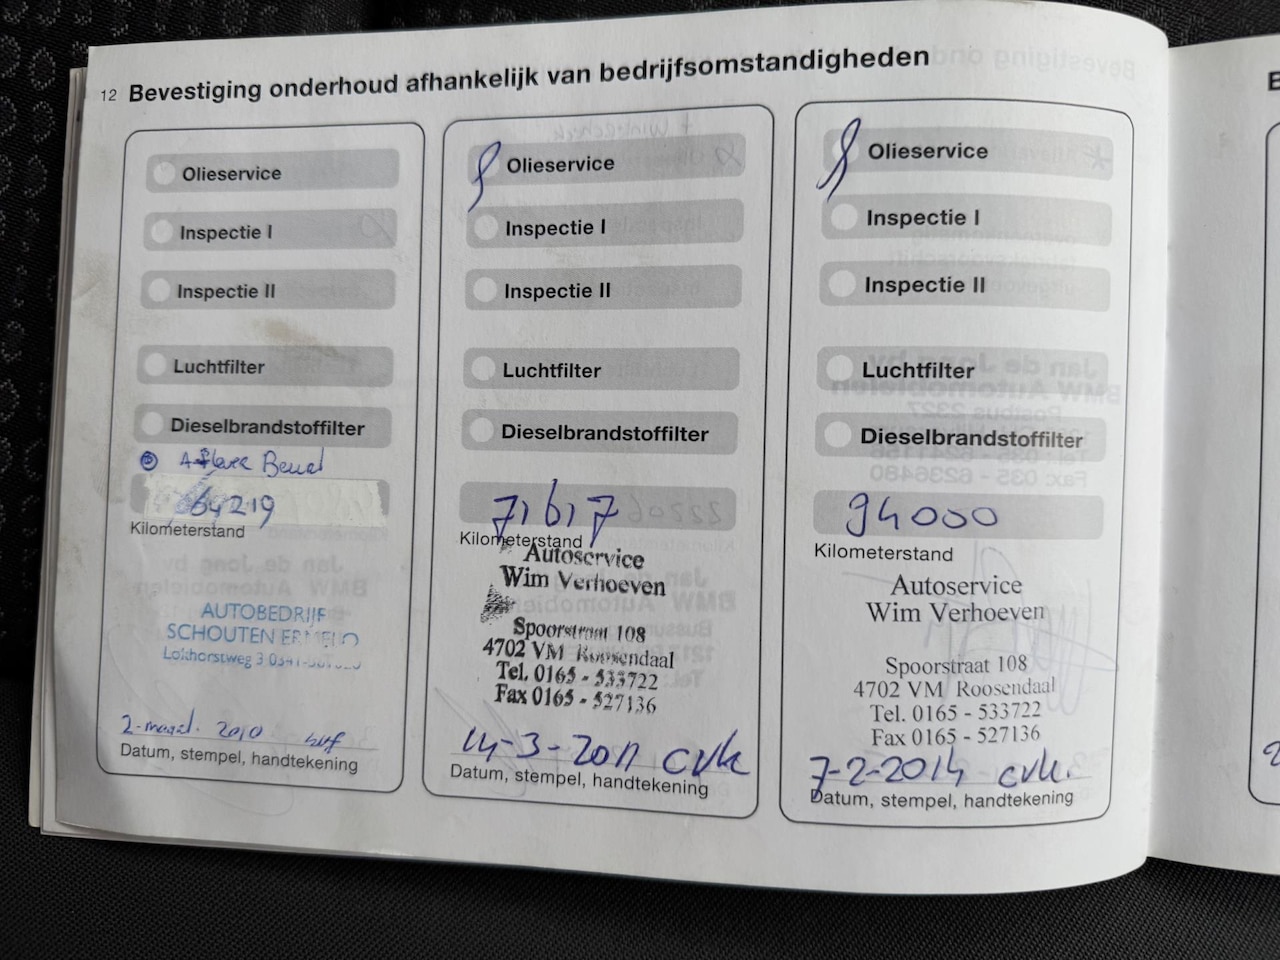 12 Bevestiging onderhoud afhankelijk van bedrijfsomstandigheden
Olieservice
Inspectie I
Inspectie II
Luchtfilter
Dieselbrandstoffilter
64219
Kilometerstand
AUTOBEDRIJF
SCHOUTEN ERMELO
Lokhorstweg 3
2-maart. 2010
Datum, stempel, handtekening
Olieservice
Inspectie I
Inspectie II
Luchtfilter
Dieselbrandstoffilter
71617
Kilometerstand
Autoservice
Wim Verhoeven
Spoorstraat 108
4702 VM Roosendaal
Tel. 0165 - 533722
Fax 0165 - 527136
14-3-2011 cvk
Datum, stempel, handtekening
Olieservice
Inspectie I
Inspectie II
Luchtfilter
Dieselbrandstoffilter
94000
Kilometerstand
Autoservice
Wim Verhoeven
Spoorstraat 108
4702 VM Roosendaal
Tel. 0165 - 533722
Fax 0165 - 527136
7-2-2014 cvk.
Datum, stempel, handtekening